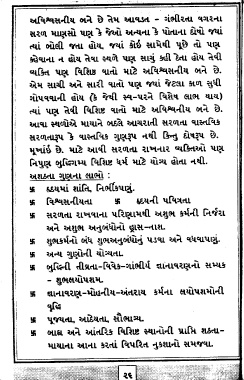 અવિશ્વસનીય બને છે તેમ આવડત - ગંભીરતા વગરના
સરળ માણસો પણ કે જેઓ અન્યના કે પોતાના દોષો જ્યાં
ત્યાં બોલી જતા હોય, જ્યાં કોઈ સામેથી પૂછે તો પણ
કહેવાના ન હોય તેવા સ્થળે પણ સામું કહી દેતા હોય તેવી
વ્યક્તિ પણ વિશિષ્ટ વાતો માટે અવિશ્વસનીય બને છે.
એમ સાચી અને સારી વાતો પણ જ્યાં જેટલા કાળ સુધી
ગોપવવાની હોય (કે જેથી સ્વ-પરને વિશેષ લાભ થાય)
ત્યાં પણ તેવી વિશિષ્ટ વાતો માટે અવિશ્વનીય બને છે.
આવા સ્થળોએ માયાને બદલે આચરાતી સરળતા વાસ્તવિક
સરળતારૂપ કે વાસ્તવિક ગુણરૂપ નથી કિન્તુ દોષરૂપ છે.
મૂર્ખાઈ છે. માટે આવી સરળતા રાખનાર વ્યક્તિઓ પણ
નિપુણ બુદ્ધિગમ્ય વિશિષ્ટ ધર્મ માટે યોગ્ય હોતા નથી.
અશઠતા ગુણના લાભો :
卐 હૃદયમાં શાંતિ, નિર્ભીકપણું.
卐 વિશ્વસનીયતા 卐 હૃદયની પવિત્રતા
卐 સરળતા રાખવાના પરિણામથી અશુભ કર્મની નિર્જરા
અને અશુભ અનુબંધોનો હ્રાસ-નાશ.
卐 શુભકર્મનો બંધ શુભઅનુબંધોનું પડવા અને વધવાપણું.
卐 અન્ય ગુણોની યોગ્યતા.
卐 બુદ્ધિની તીવ્રતા-વિવેક-ગાંભીર્ય જ્ઞાનાવરણનો સમ્યક
- શુભલયોપશમ.
卐 જ્ઞાનાવરણ-મોહનીય-અંતરાય કર્મના લયોપશમોની
વૃદ્ધિ
卐 પૂજ્યતા, આદેયતા, સૌભાગ્ય.
卐 બાહ્ય અને આંતરિક વિશિષ્ટ સ્થાનોની પ્રાપ્તિ શઠતા-
માયાના આના કરતાં વિપરિત નુકશાનો સમજવા.
૨૬